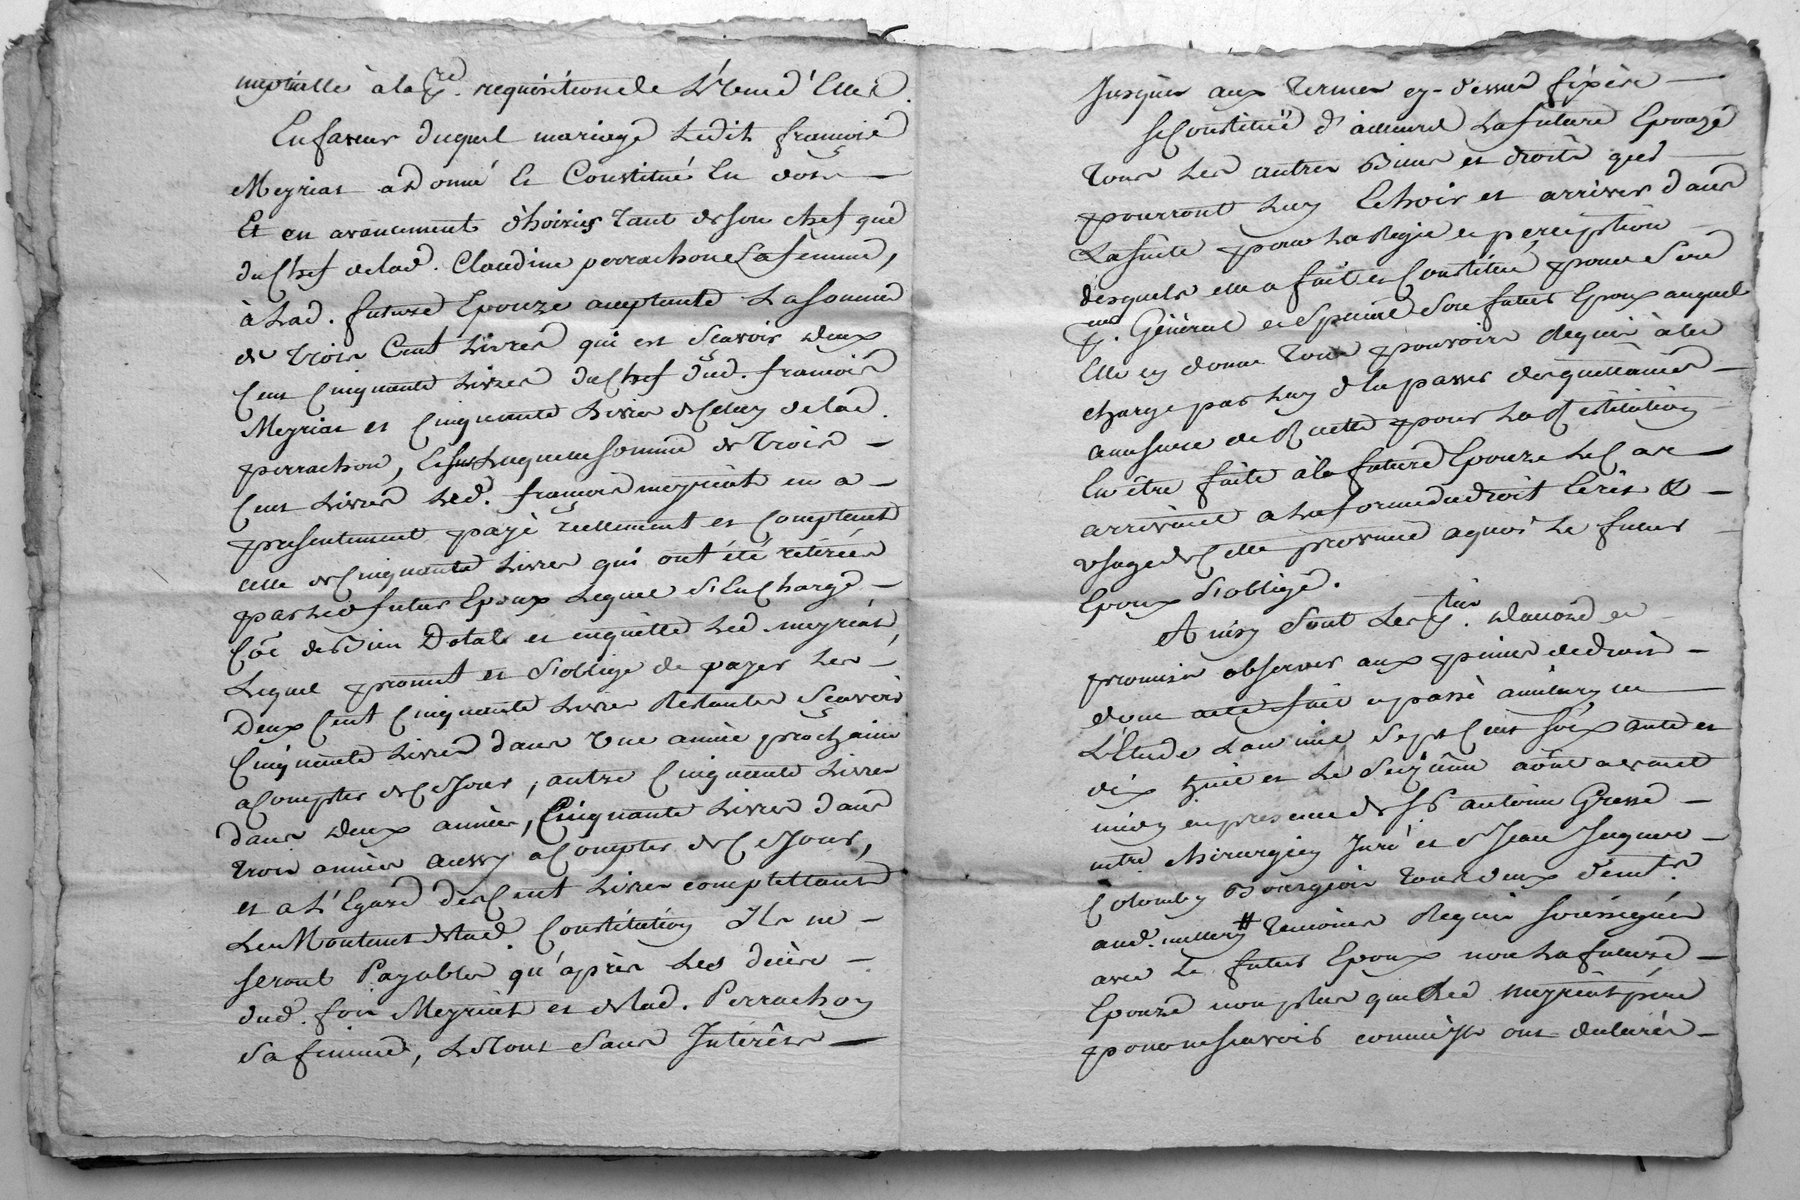 nuptialle à la p.re requisition de L'Une d'Elles.
En faveur duquel mariage Ledit françois
Meyriat a donné Et Constitué En dote —
Et en avancement d'hoiries tant de son chef que
du Chef de lad. Claudine perrachon Sa femme,
à Lad. future Epouze acceptante La somme
de trois Cent Livres qui est Sçavoir deux
Cent Cinquante Livres du Chef dud. françois
Meyriat et Cinquante Livres de Celuy de lad.
perrachon, Et sur Laquelle somme de trois —
Cent Livres Led. françois meyriat en a —
presentement payé réellement et Comptant
celle de Cinquante Livres qui ont été retirées
par Led. futur Epoux Lequel s'En Charge —
Co͂e de Bien Dotal et en quitte Led. meyriat,
Lequel promet et s'oblige de payer Les —
Deux Cent Cinquante Livres Restantes Sçavoir
Cinquante Livres dans Une année prochaine
a Compter de Ce Jour, autre Cinquante Livres
dans deux années, Cinquante Livres dans
trois années aussy a Compter de Ce Jour,
et a L'Egard des Cent Livres complettant
Le Montant de lad. Constitution Ils ne —
seront Payables qu'après Les décès —
dud. fois Meyriat et de lad. Perrachon
Sa femme, Le tout Sans Intérêts —
Jusques aux termes cy-dessus fixés —
Se Constitue d'ailleurs La future Epouze
tous Les autres Biens et droits qui —
pourront Luy Echoir et arriver dans
La suitte pour La Regie et perception —
desquels elle a fait et Constitué pour Son
p.eur Général et Special Son futur Epoux auquel
Elle en donne tout pouvoir requis à la
charge par Luy d'En passer des quittances —
a mesure de Recette pour La Restitution
En être faite à la future Epouze Le Cas —
arrivant a La forme du droit Ecrit & —
Usage de Cette province a quoi Le futur —
Epoux s'oblige.
Ainsy Sont Les p.ties d'accord et
promis observer aux peines de droit —
dont acte fait et passé audit
L'Etude L'an mil Sept Cent soixante et
dix huit et Le Seizième août avant
midy en presence de Sr antoine —
mtre. chirurgien Juré et Sr Jean Jaques —
Colomby Bourgeois tous deux demt.
aud. # temoins Requis soussignés
avec Le futur Epoux non La future —
Epouze non plus que Led. meyriat père
pour ne sçavoir comme ils ont declarés —